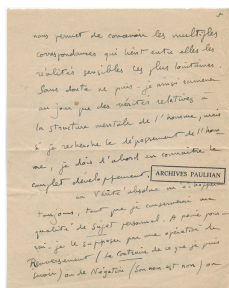 nous permet de concevoir les multiples
correspondances qui lient entre elles les
réalités sensibles les plus lointaines.
Sans doute ne puis-je ainsi amener
au jour que des vérités relatives à
la structure mentale de l'homme, mais
si je recherche le dépassement de l'hom-
me, je dois d'abord en connaître le
complet développement.
ARCHIVES PAULHAN
La Vérité absolue m'échappe
toujours, tant que je conserverai ma
qualité de sujet personnel. A peine pour-
rai-je la supposer par une opération de
Renversement (le contraire de ce que je puis
savoir) ou de Négation (son non est non) ou